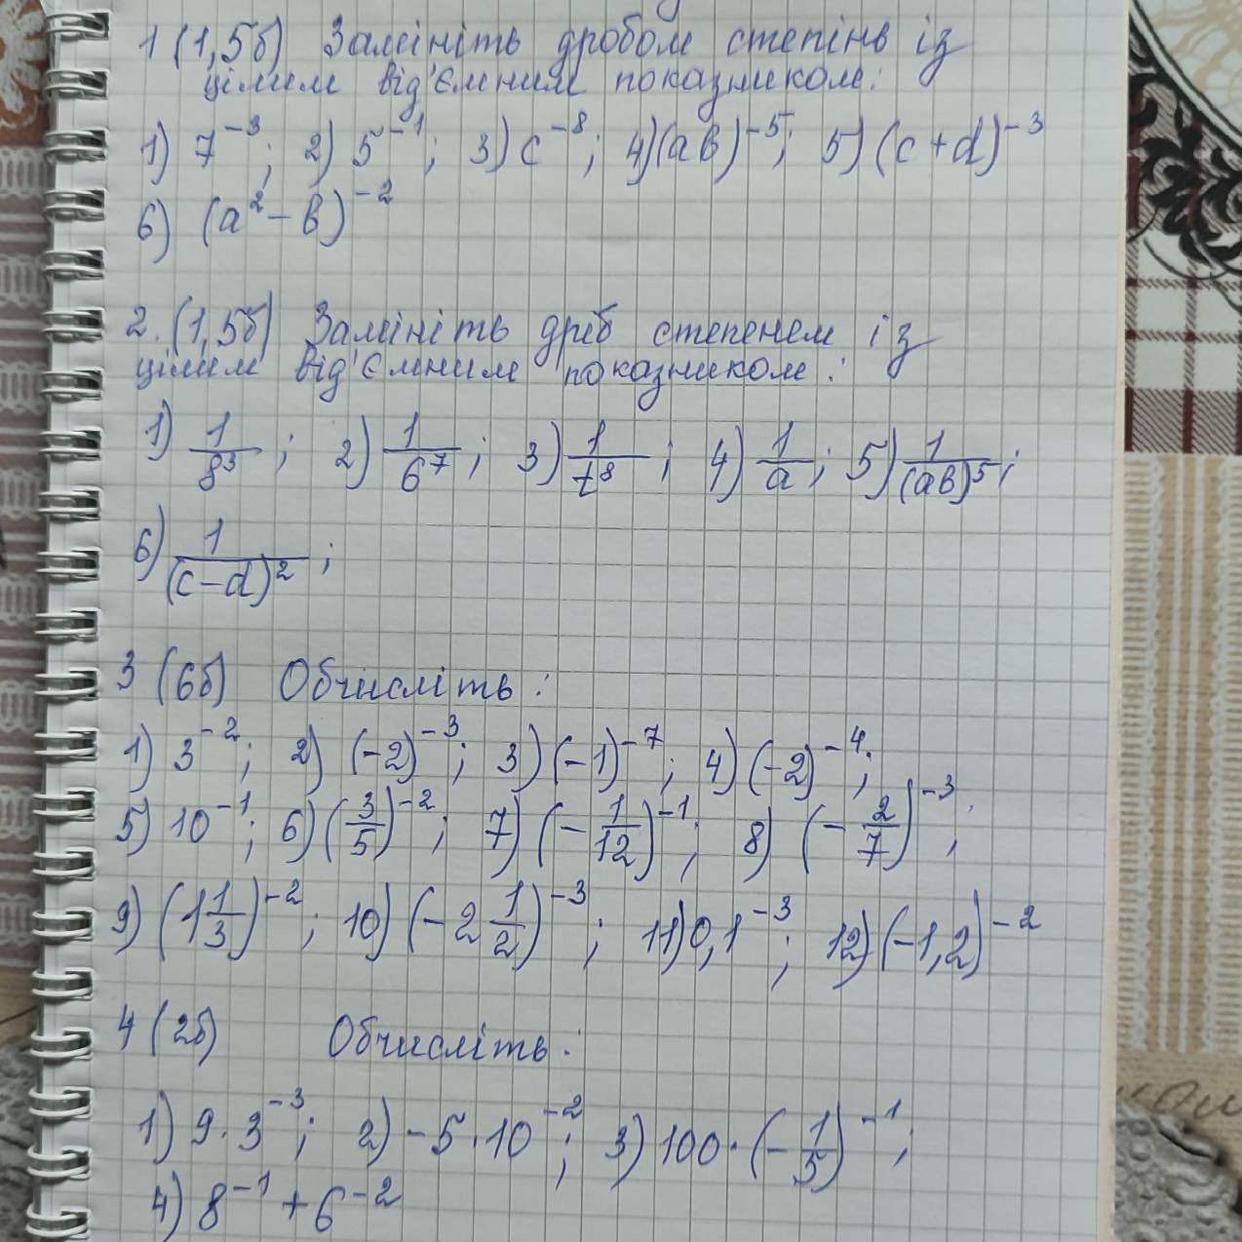 1 (1,5б) Замініть дробом степінь із
цілим від'ємним показником:
1) 7^{-3}; 2) 5^{-1}; 3) c^{-8}; 4) (ab)^{-5}; 5) (c+d)^{-3}
6) (a^2-b)^{-2}
2. (1,5б) Замініть дріб степенем із
цілим від'ємним показником:
1) \frac{1}{8^3}; 2) \frac{1}{6^7}; 3) \frac{1}{t^8}; 4) \frac{1}{a}; 5) \frac{1}{(ab)^5};
6) \frac{1}{(c-d)^2};
3 (6б) Обчисліть:
1) 3^{-2}; 2) (-2)^{-3}; 3) (-1)^{-7}; 4) (-2)^{-4};
5) 10^{-1}; 6) (\frac{3}{5})^{-2}; 7) (-\frac{1}{12})^{-1}; 8) (-\frac{2}{7})^{-3};
9) (1\frac{1}{3})^{-2}; 10) (-2\frac{1}{2})^{-3}; 11) 0,1^{-3}; 12) (-1,2)^{-2}
4 (2б) Обчисліть:
1) 9·3^{-3}; 2) -5·10^{-2}; 3) 100·(-\frac{1}{5})^{-1};
4) 8^{-1}+6^{-2}